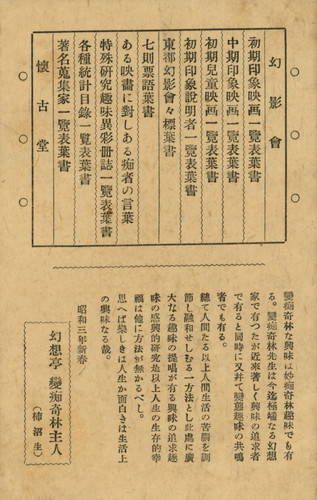 幻影會
初期印象映画一覽表葉書
中期印象映画一覽表葉書
初期兒童映画一覽表葉書
初期印象說明者一覽表葉書
東都幻影會々標葉書
七則票語葉書
ある映畫に對しある痴者の言葉
特殊研究趣味異彩冊誌一覽表葉書
各種統計目錄一覽表葉書
著名蒐集家一覽表葉書
懷古堂
變痴奇林な興味は妙痴奇林趣味でも有
る。變痴奇林先生は今迄極端なる幻想
家で有つたが近來著しく興味の追求者
で有ると同時に又幷て變態趣味の共鳴
者でも有る。
總て人間たる以上人間生活の苦腦を調
節し融和せしむる一方法とし此處に廣
大なる趣味の提唱が有る興味の追求趣
味の感興的研究是以上人生の生存的幸
福は他に方法は無かるべし。
思へば樂しきは人生か面白きは生活上
の興味なる哉。
昭和三年新春
幻想亭 變痴奇林主人
(柿沼生)